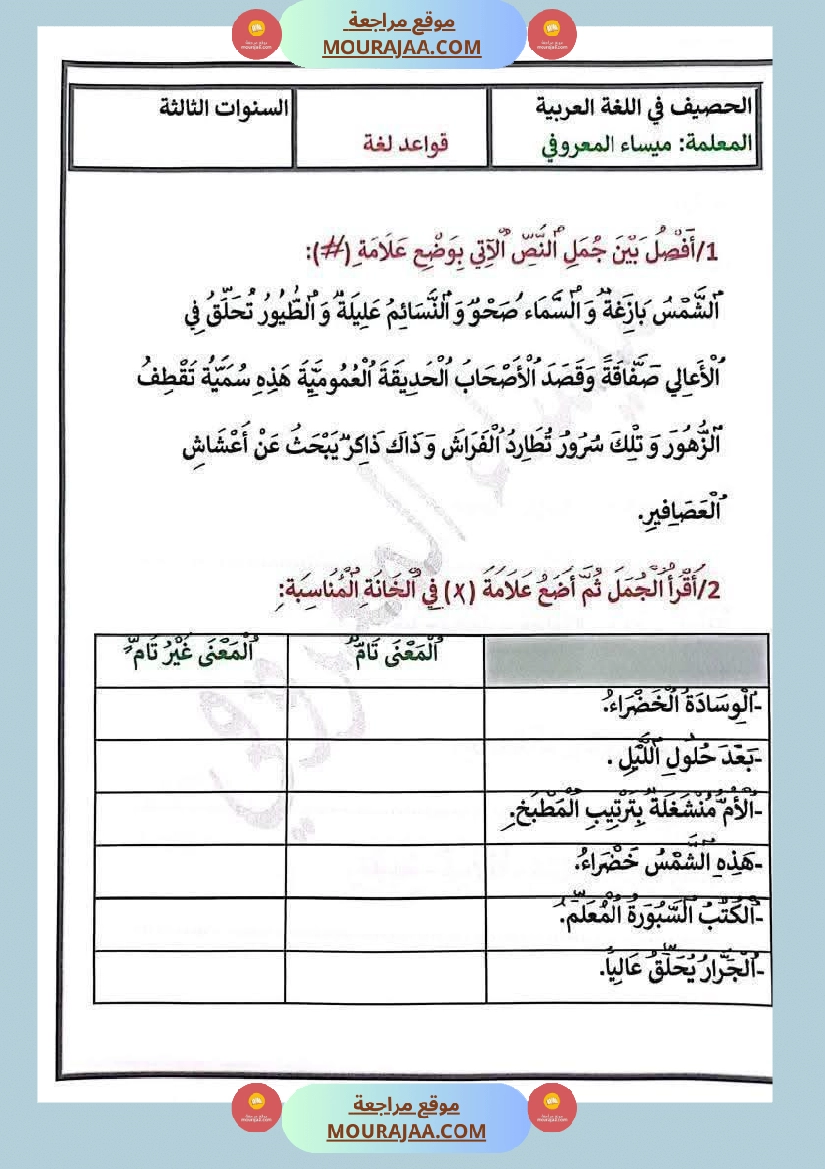 موقع مراجعة
MOURAJAA.COM
الحصيف في اللغة العربية
المعلمة: ميساء المعروفي
قواعد لغة
السنوات الثالثة
1/أَفْصِلُ بَيْنَ جُمَلِ ٱلنَّصِّ ٱلْآتِي بِوَضْعِ عَلَامَةِ (#):
ٱلشَّمْسُ بَازِغَةٌ وَ ٱلسَّمَاء صَحْوٌ وَ ٱلنَّسَائِمُ عَلِيلَةٌ وَ ٱلطُّيُورُ تُحَلِّقُ فِي
ٱلْأَعَالِي صَفَّاقَةً وَقَصَدَ ٱلْأَصْحَابُ ٱلْحَدِيقَةَ ٱلْعُمُومِيَّةَ هَذِهِ سُمَيَّةُ تَقْطِفُ
ٱلزُّهُورَ وَ تْلِكَ سُرُورُ تُطَارِدُ ٱلْفَرَاشَ وَ ذَاكَ ذَاكِرٌ يَبْحَثُ عَنْ أَعْشَاشِ
ٱلْعَصَافِيرِ.
2/أَقْرَأُ ٱلْجُمَلَ ثُمَّ أَضَعُ عَلَامَةَ (x) فِي ٱلْخَانَةِ ٱلْمُنَاسِبَةِ:
ٱلْمَعْنَى تَامٌّ
ٱلْمَعْنَى غَيْرُ تَامٍّ
-ٱلْوِسَادَةُ ٱلْخَضْرَاءُ.
-بَعْدَ حُلُولِ ٱللَّيْلِ .
-ٱلْأُمُّ مُنْشَغِلَةٌ بِتَرْتِيبِ ٱلْمَطْبَخِ.
-هَذِهِ ٱلشَّمْسُ خَضْرَاءُ.
-ٱلْكُتُبُ ٱلسَّبُورَةُ ٱلْمُعَلِّمُ.
-ٱلْجَرَّارُ يُحَلِّقُ عَالِيًا.
ميساء المعروفي
موقع مراجعة
MOURAJAA.COM